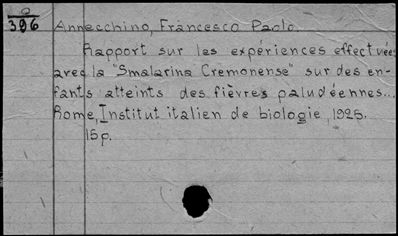 Q
396
Annecchino, Francesco Paolo.
Rapport sur les expériences effectuées
avec la "Smalarina Cremonense" sur des en-
fants atteints des fièvres paludéennes...
Rome, Institut italien de biologie, 1925.
15p.